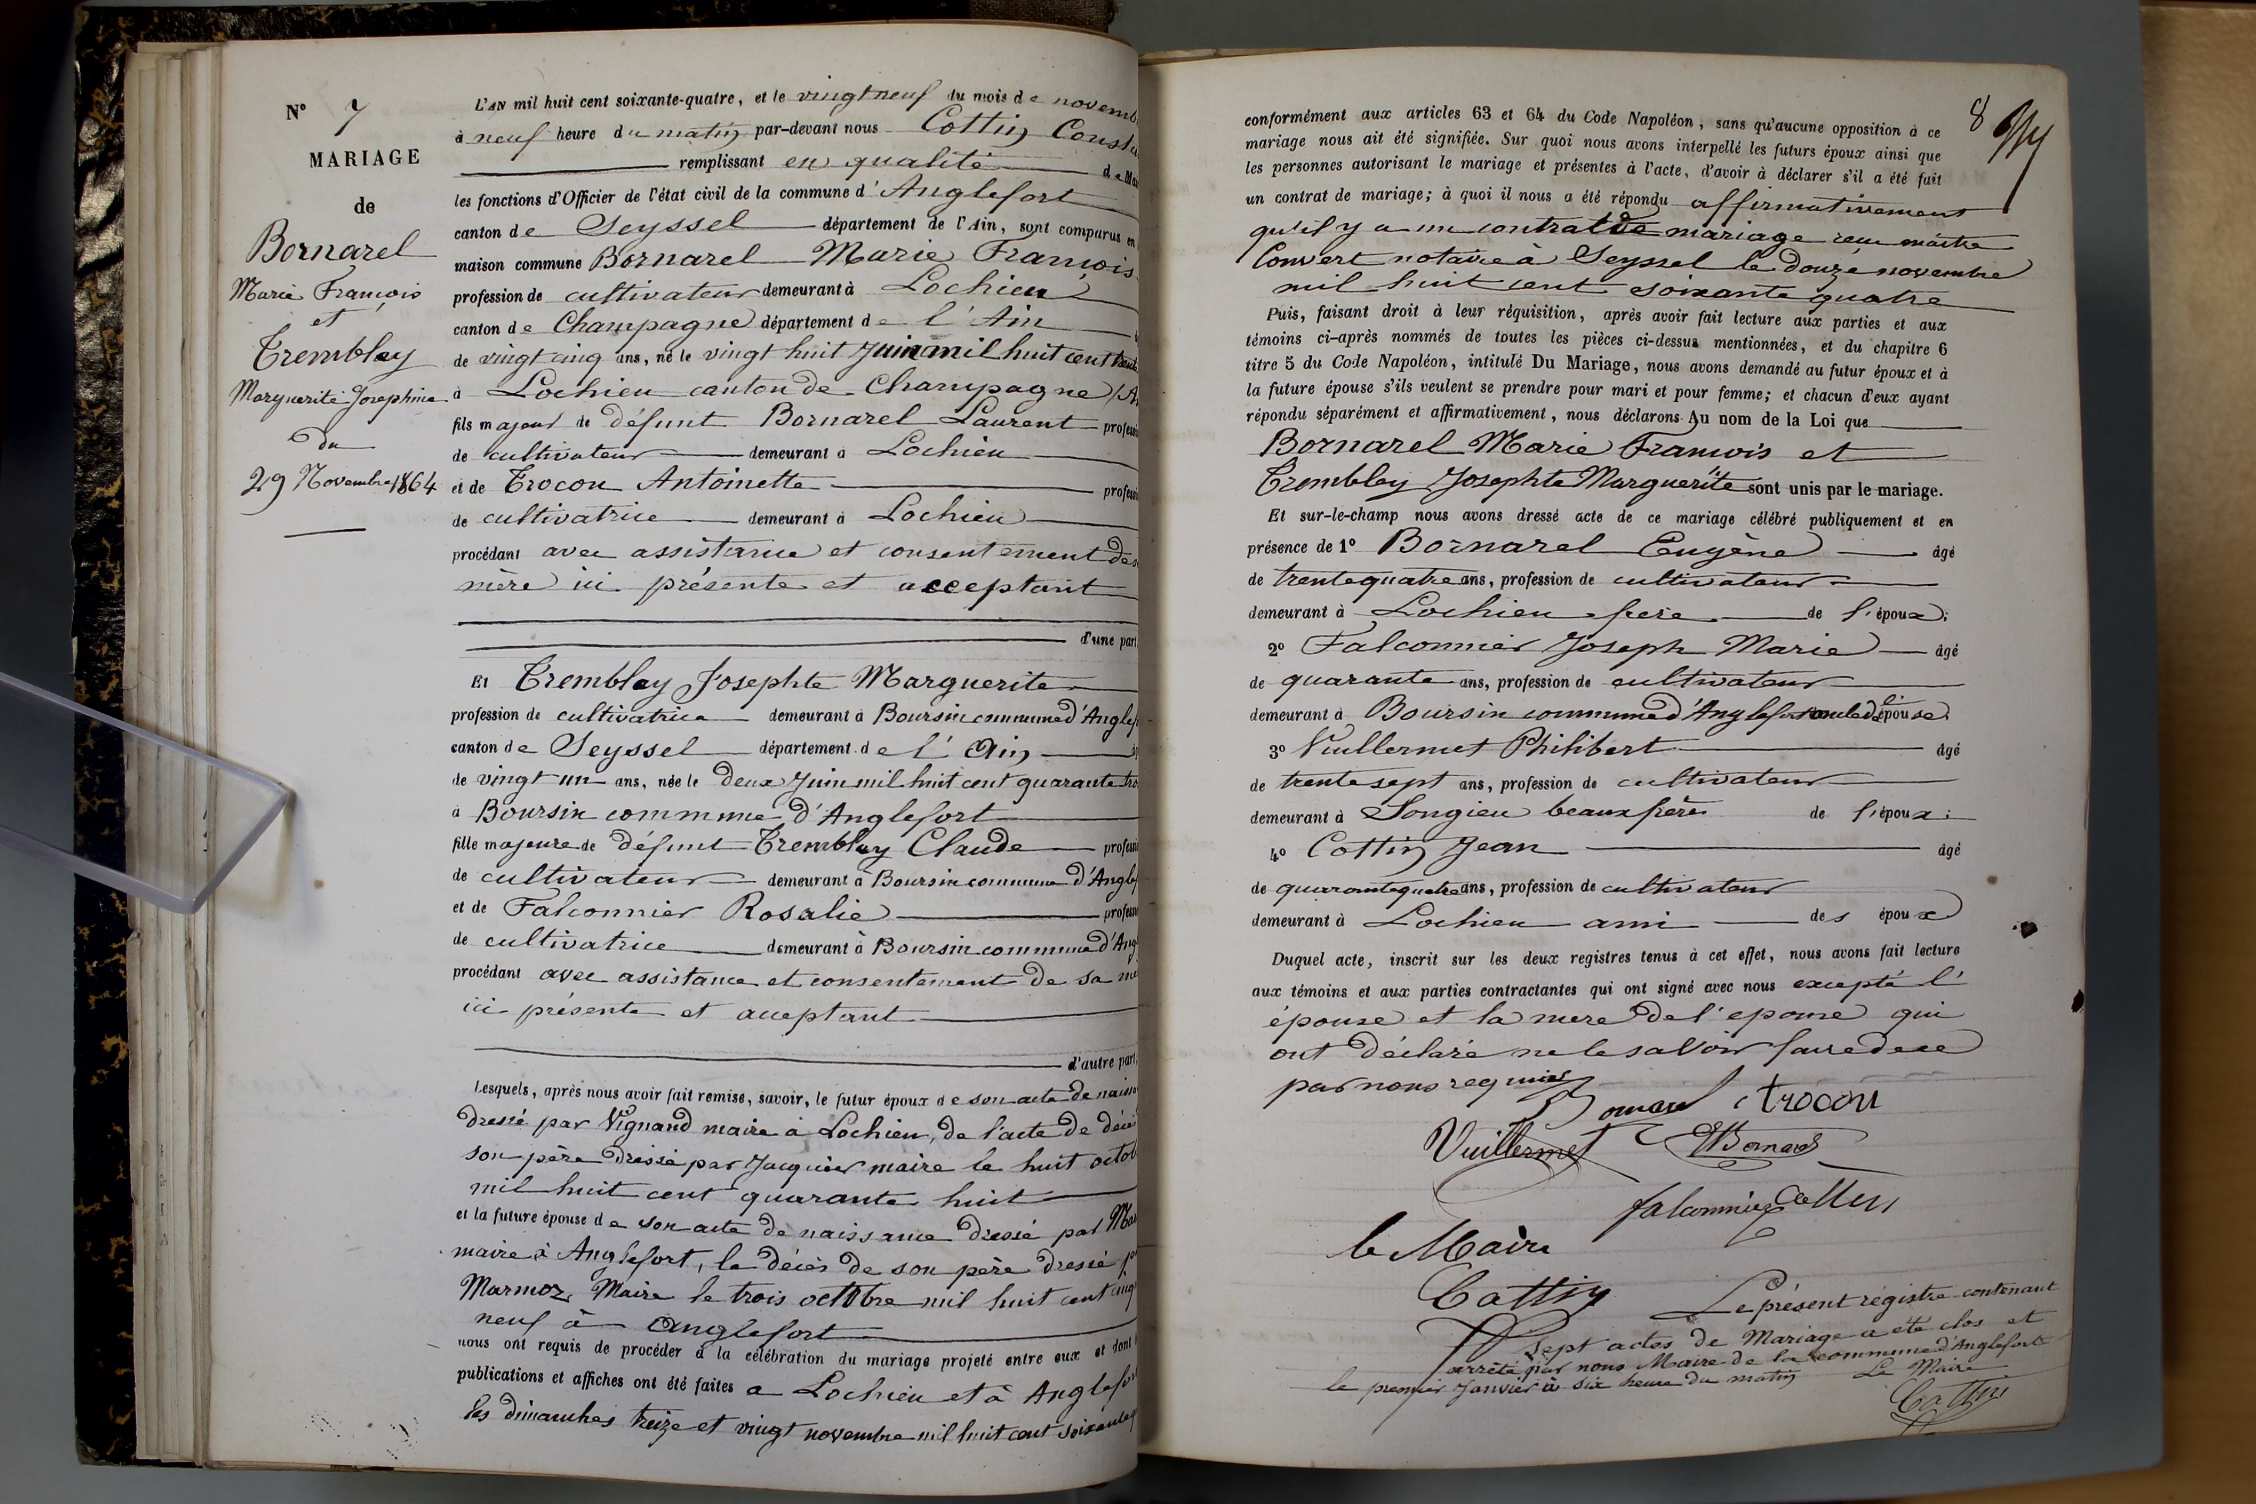 N° 7
MARIAGE
de
Bornarel
Marie François
et
Tremblay
Marguerite Josephine
du
29 Novembre 1864
L'AN mil huit cent soixante-quatre, et le vingt neuf du mois de novemb
à neuf heure du matin par-devant nous Cottin Const
remplissant en qualité de Mai
les fonctions d'Officier de l'état civil de la commune d'Anglefort
canton de Seyssel département de l'Ain, sont comparus en
maison commune Bornarel Marie François
profession de cultivateur demeurant à Lochieu
canton de Champagne département de l'Ain
de vingt cinq ans, né le vingt huit Juin mil huit cent trente
à Lochieu canton de Champagne (A
fils majeur de défunt Bornarel Laurent professi
de cultivateur demeurant à Lochieu
et de Trocon Antoinette professi
de cultivatrice demeurant à Lochieu
procédant avec assistance et consentement de s
mère ici présente et acceptant
d'une part
Et Tremblay Josephte Marguerite
profession de cultivatrice demeurant à Boursin commune d'Anglef
canton de Seyssel département de l'Ain
de vingt un ans, née le deux Juin mil huit cent quarante tro
à Boursin commune d'Anglefort
fille majeure de défunt Tremblay Claude professi
de cultivateur demeurant à Boursin commune d'Anglef
et de Falconnier Rosalie professi
de cultivatrice demeurant à Boursin commune d'Ang
procédant avec assistance et consentement de sa mè
ici présente et acceptant
d'autre part,
Lesquels, après nous avoir fait remise, savoir, le futur époux de son acte de naiss
dressé par Vignand maire à Lochieu, de l'acte de décè
son père dressé par Jacquier maire le huit octob
mil huit cent quarante huit
et la future épouse de son acte de naissance dressé par Ma
maire à Anglefort, le décès de son père dressé p
Marmoz Maire le trois octobre mil huit cent cinq
neuf à Anglefort
nous ont requis de procéder à la célébration du mariage projeté entre eux et dont l
publications et affiches ont été faites a Lochieu et à Anglefor
les dimanches treize et vingt novembre mil huit cent soixante q
8
conformément aux articles 63 et 64 du Code Napoléon, sans qu'aucune opposition à ce
mariage nous ait été signifiée. Sur quoi nous avons interpellé les futurs époux ainsi que
les personnes autorisant le mariage et présentes à l'acte, d'avoir à déclarer s'il a été fait
un contrat de mariage; à quoi il nous a été répondu affirmativement
qu'il y a un contrat de mariage reçu maître
Convert notaire à Seyssel le douze novembre
mil huit cent soixante quatre
Puis, faisant droit à leur réquisition, après avoir fait lecture aux parties et aux
témoins ci-après nommés de toutes les pièces ci-dessus mentionnées, et du chapitre 6
titre 5 du Code Napoléon, intitulé Du Mariage, nous avons demandé au futur époux et à
la future épouse s'ils veulent se prendre pour mari et pour femme; et chacun d'eux ayant
répondu séparément et affirmativement, nous déclarons Au nom de la Loi que
Bornarel Marie François et
Tremblay Josephte Marguerite sont unis par le mariage.
Et sur-le-champ nous avons dressé acte de ce mariage célébré publiquement et en
présence de 1° Bornarel Eugène âgé
de trente quatre ans, profession de cultivateur
demeurant à Lochieu frère de l'époux;
2° Falconnier Joseph Marie âgé
de quarante ans, profession de cultivateur
demeurant à Boursin commune d'Anglefort oncle de l'épouse
3° Vuillermet Philibert âgé
de trente sept ans, profession de cultivateur
demeurant à Songieu beaux frère de l'époux;
4° Cottin Jean âgé
de quarante quatre ans, profession de cultivateur
demeurant à Lochieu ami des époux
Duquel acte, inscrit sur les deux registres tenus à cet effet, nous avons fait lecture
aux témoins et aux parties contractantes qui ont signé avec nous excepté l'
épouse et la mere de l'epouse qui
ont déclaré ne le savoir faire de ce
par nous requises
Bornarel trocon
Vuillermet EBornarel
falconnier Cottin
le Maire
Cottin
Le présent régistre contenant
sept actes de Mariage a été clos et
arrêté par nous Maire de la commune d'Anglefort
le premier Janvier à six heure du matin Le Maire
Cottin